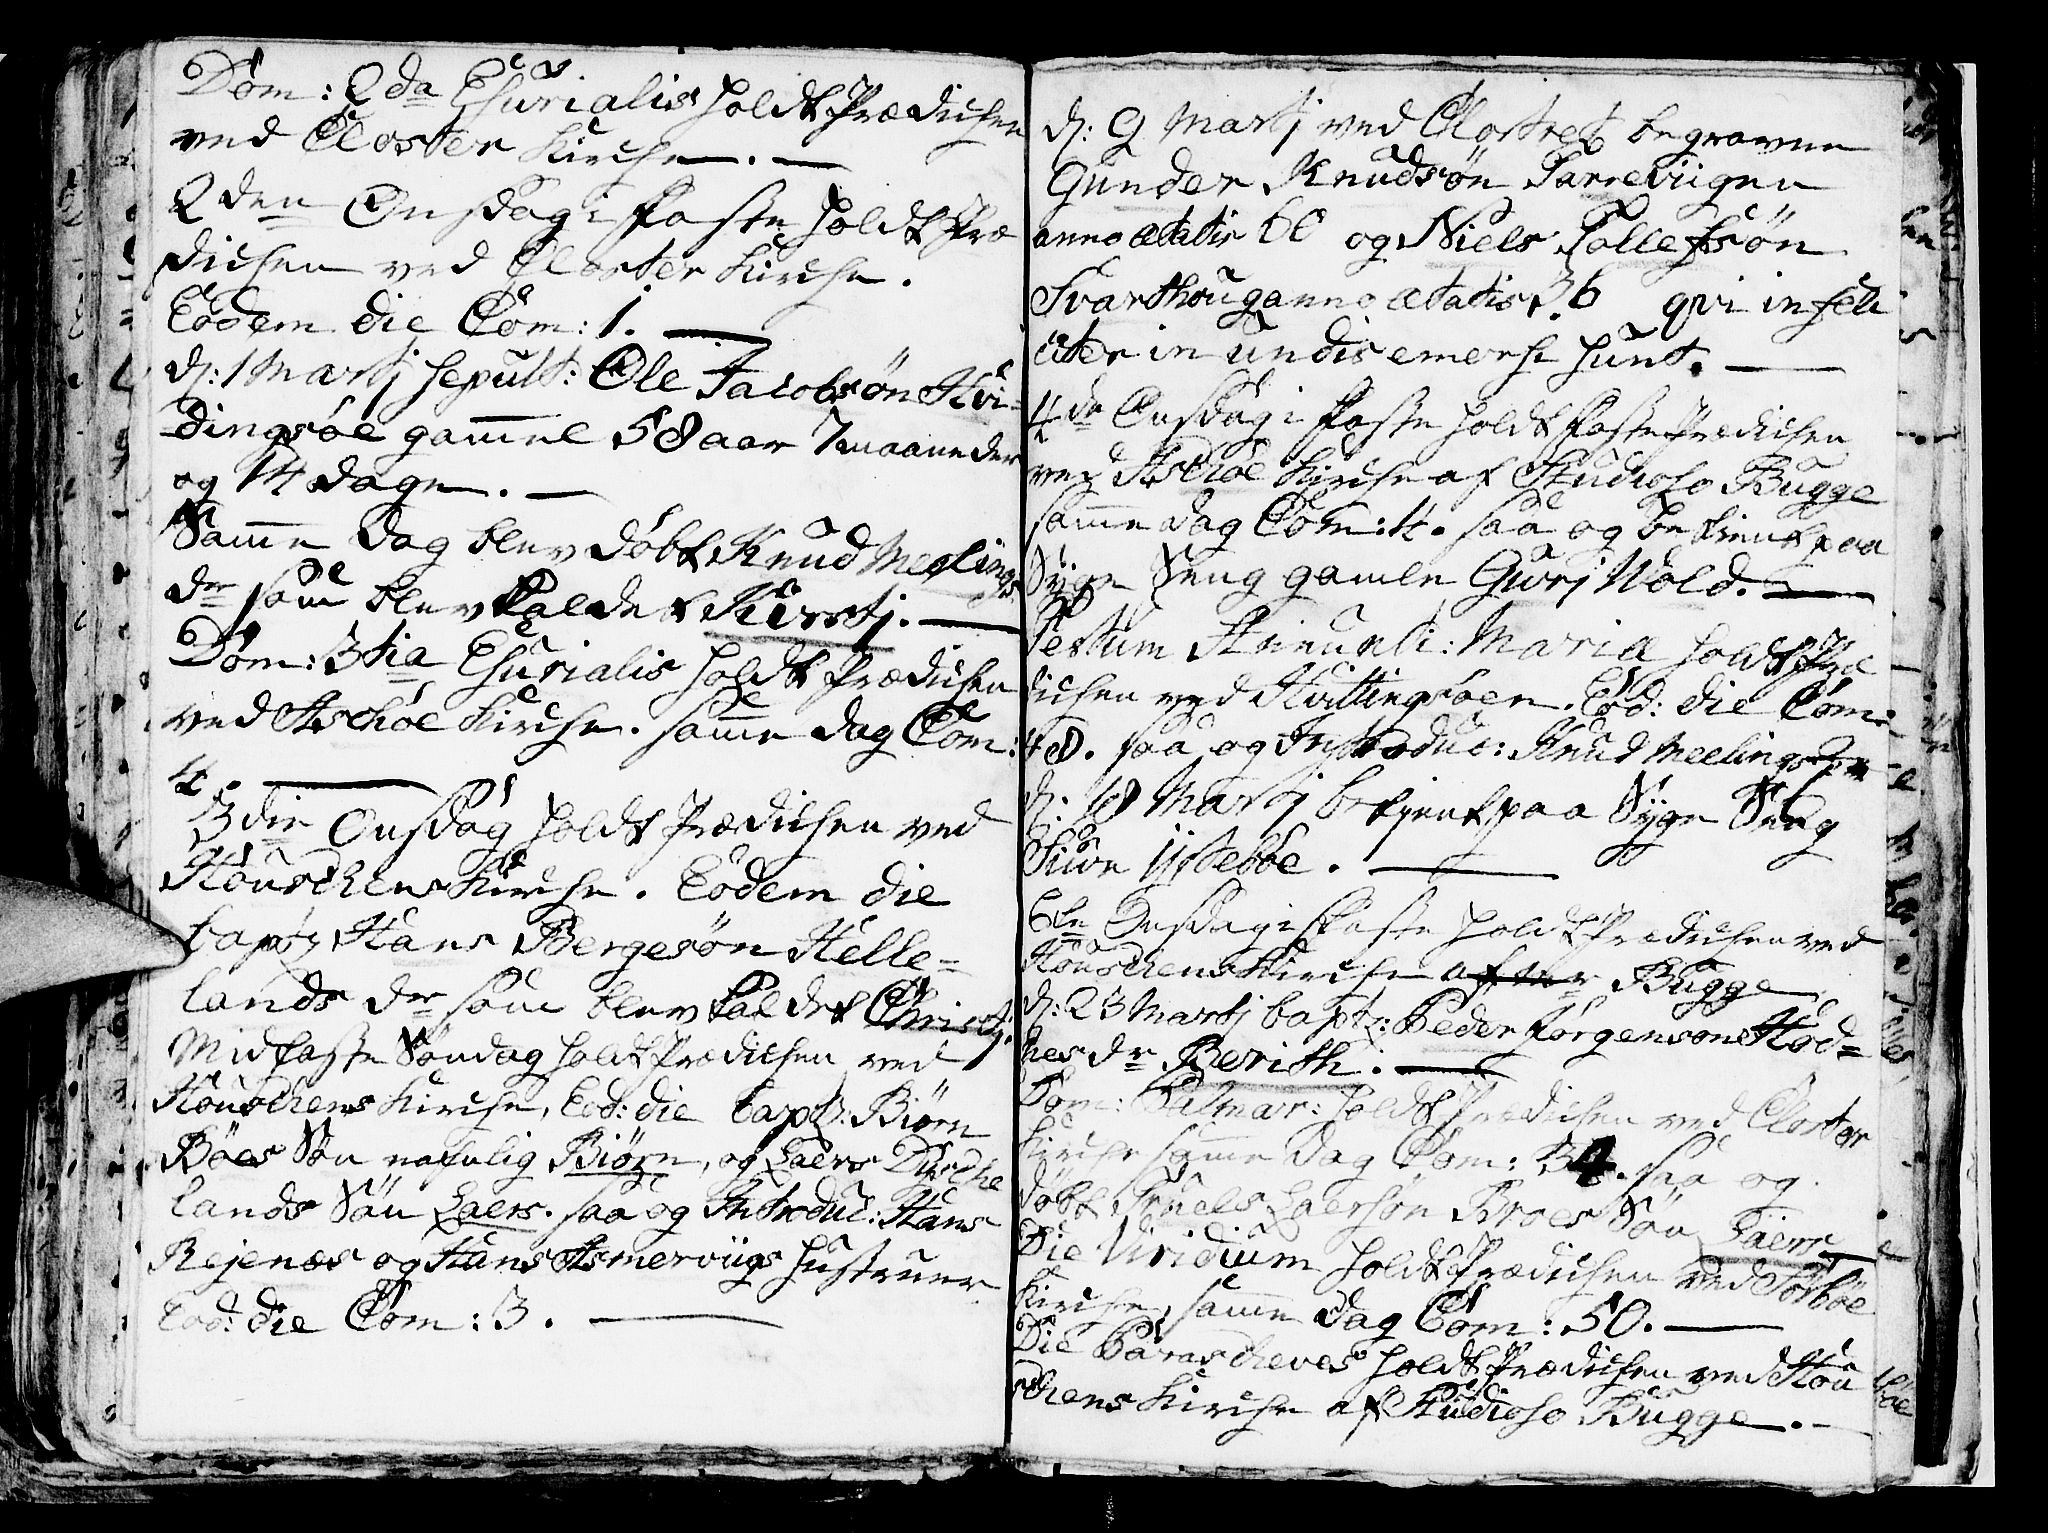 Dom: 2da Esurialis holdt Prædichen
ved Closter Kirche.
2den Onsdag i Faste holdt Præ
dichen ved Closter Kirche.
Eodem die Com: 1.
d: 1 Martj sepult: Ole Jacobsøn Hvi=
dingsøe gamel 58 aar 7 maaneder
og 14 dage.
Same Dag blev døbt Knud Meelings
dr som blev kaldet Kirstj.
Dom: 3tia Esurialis holdt Prædichen
ved Aschøe Kirche. same dag Com:
4.
3die Onsdag holdt Prædichen ved
Houschens Kirche. Eodem die
baptz Hans Bergesøn Helle=
lands dr som blev kaldet Christj.
Midfaste Søndag holdt Prædichen ved
Houschens Kirche, Eod: die baptz: Biørn
Bøes Søn nafnlig Biørn, og Laers Dusche
lands Søn Laers. saa og Introduc: Hans
Rejenæs og Hans Asmerviigs Hustruer
Eod: die Com: 3.
d: 9 Martj ved Clostret begraven
Gunder Knudsøn Tarreviigen
anno ætatis 60 og Niels Tollefsøn
Svarthoug anno ætatis 36 qvi infeli
citer in undis emersi sunt.
4da Onsdag i Faste holdt Faste Prædichen
ved Aschøe Kirche af Studioso Bugge
same dag Com: 4. saa og betient paa
Syge Seng gamle Gurj Wold.
Festum Anunti: Mariæ holdt Præ
dichen ved Hvittingsøen. Eod: die Com:
48. saa og Introduc: Knud Meelings
d: 18 Martj betjent paa Syge Seng
Siwr Ystebøe.
6te Onsdag i Faste holdt Prædichen ved
Houschens Kirche af Bugge
d: 23 Martj baptz: Peder Jørgensøns Hod=
nes dr Berith.
Dom: Palmar: holdt Prædichen ved Closter
Kirche same dag Com: 34. saa og
døbt Knuels Laersøn Broes Søn Laers
Die Viridium holdt Prædichen ved Sørbøe
Kirche, same dag Com: 50.
Die Parascheves holdt Prædichen ved Hou
schens Kirche af Studioso Bugge.